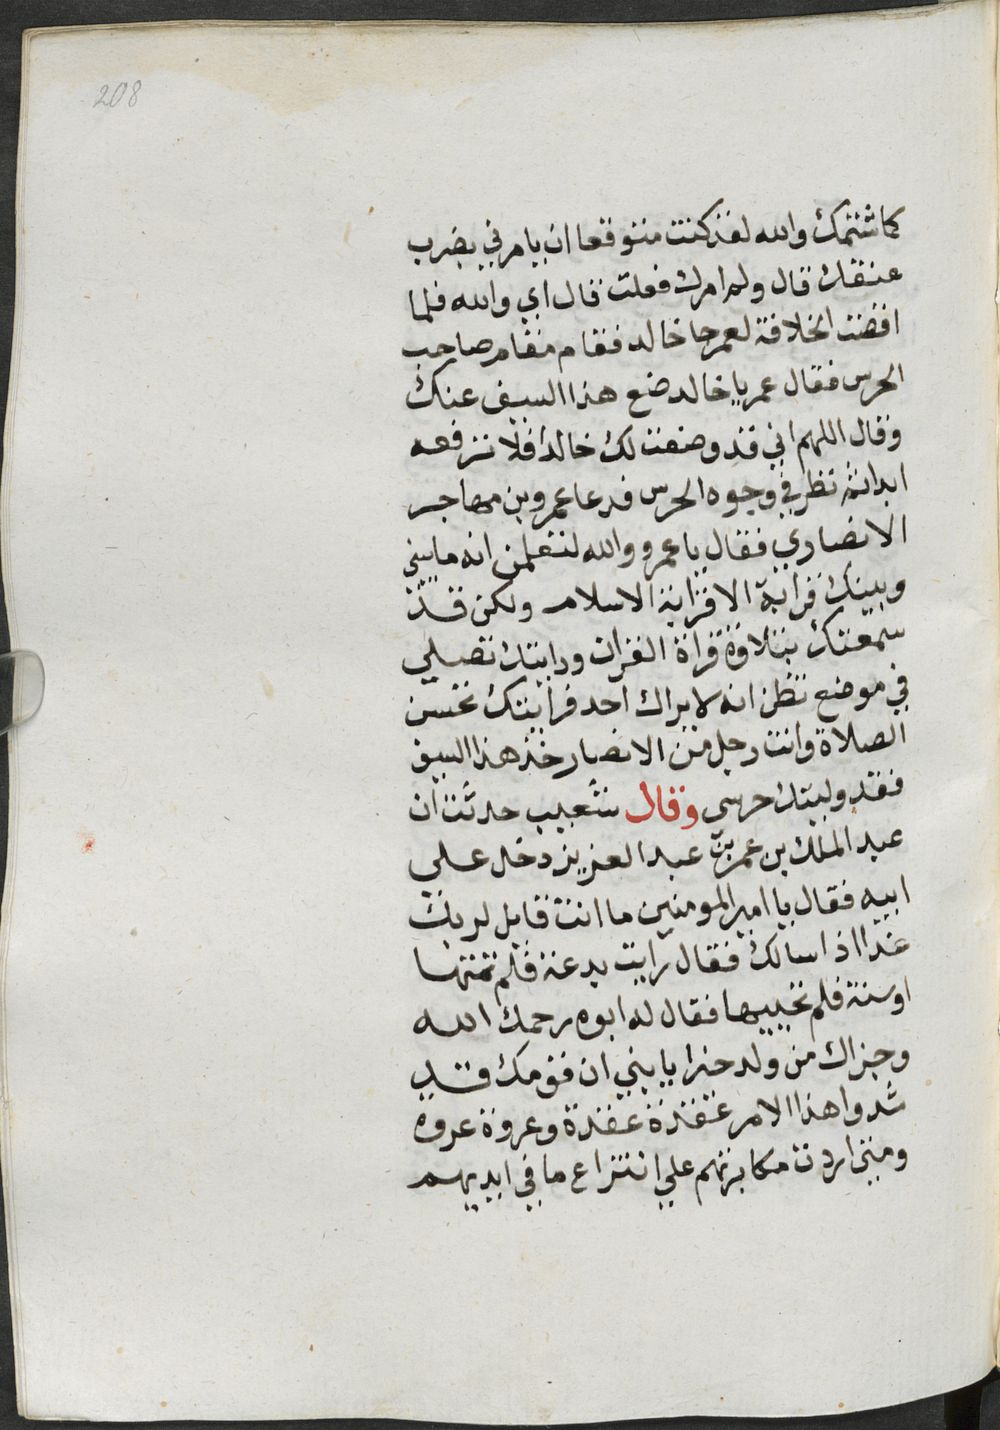 208
كما شتمك والله لقد كنت متوقعا ان يامرني بضرب
عنقك قال ولو امرك فعلت قال اي والله فلما
افضت الخلافة لعمر جا خالد فقام مقام صاحب
الحرس فقال عمر يا خالد ضع هذا السيف عنك
وقال اللهم اني قد وضعت لك خالدا فلا ترفعه
ابدا ثم نظر في وجوه الحرس فدعا عمرو بن مهاجر
الانصاري فقال يا عمرو والله لتعلمن انه ما بيني
وبينك قرابة الا قرابة الاسلام ولكن قد
سمعتك بتلاوة قراة القران ورايتك تصلي
في موضع تظن انه لا يراك احد فرايتك تحسن
الصلاة وانت رجل من الانصار خذ هذا السيف
فقد وليتك حرسي وقال شعيب حدثت ان
عبد الملك بن عمر بن عبد العزيز دخل على
ابيه فقال يا امير المومنين ما انت قايل لربك
غدا اذا سالك فقال رايت بدعة فلم تمتها
او سنة فلم تحييها فقال له ابوه رحمك الله
وجزاك من ولد خيرا يا بني ان قومك قد
شدوا هذا الامر عقدة عقدة وعروة عروه
ومتى اردت مكابرتهم علي انتزاع ما في ايديهم